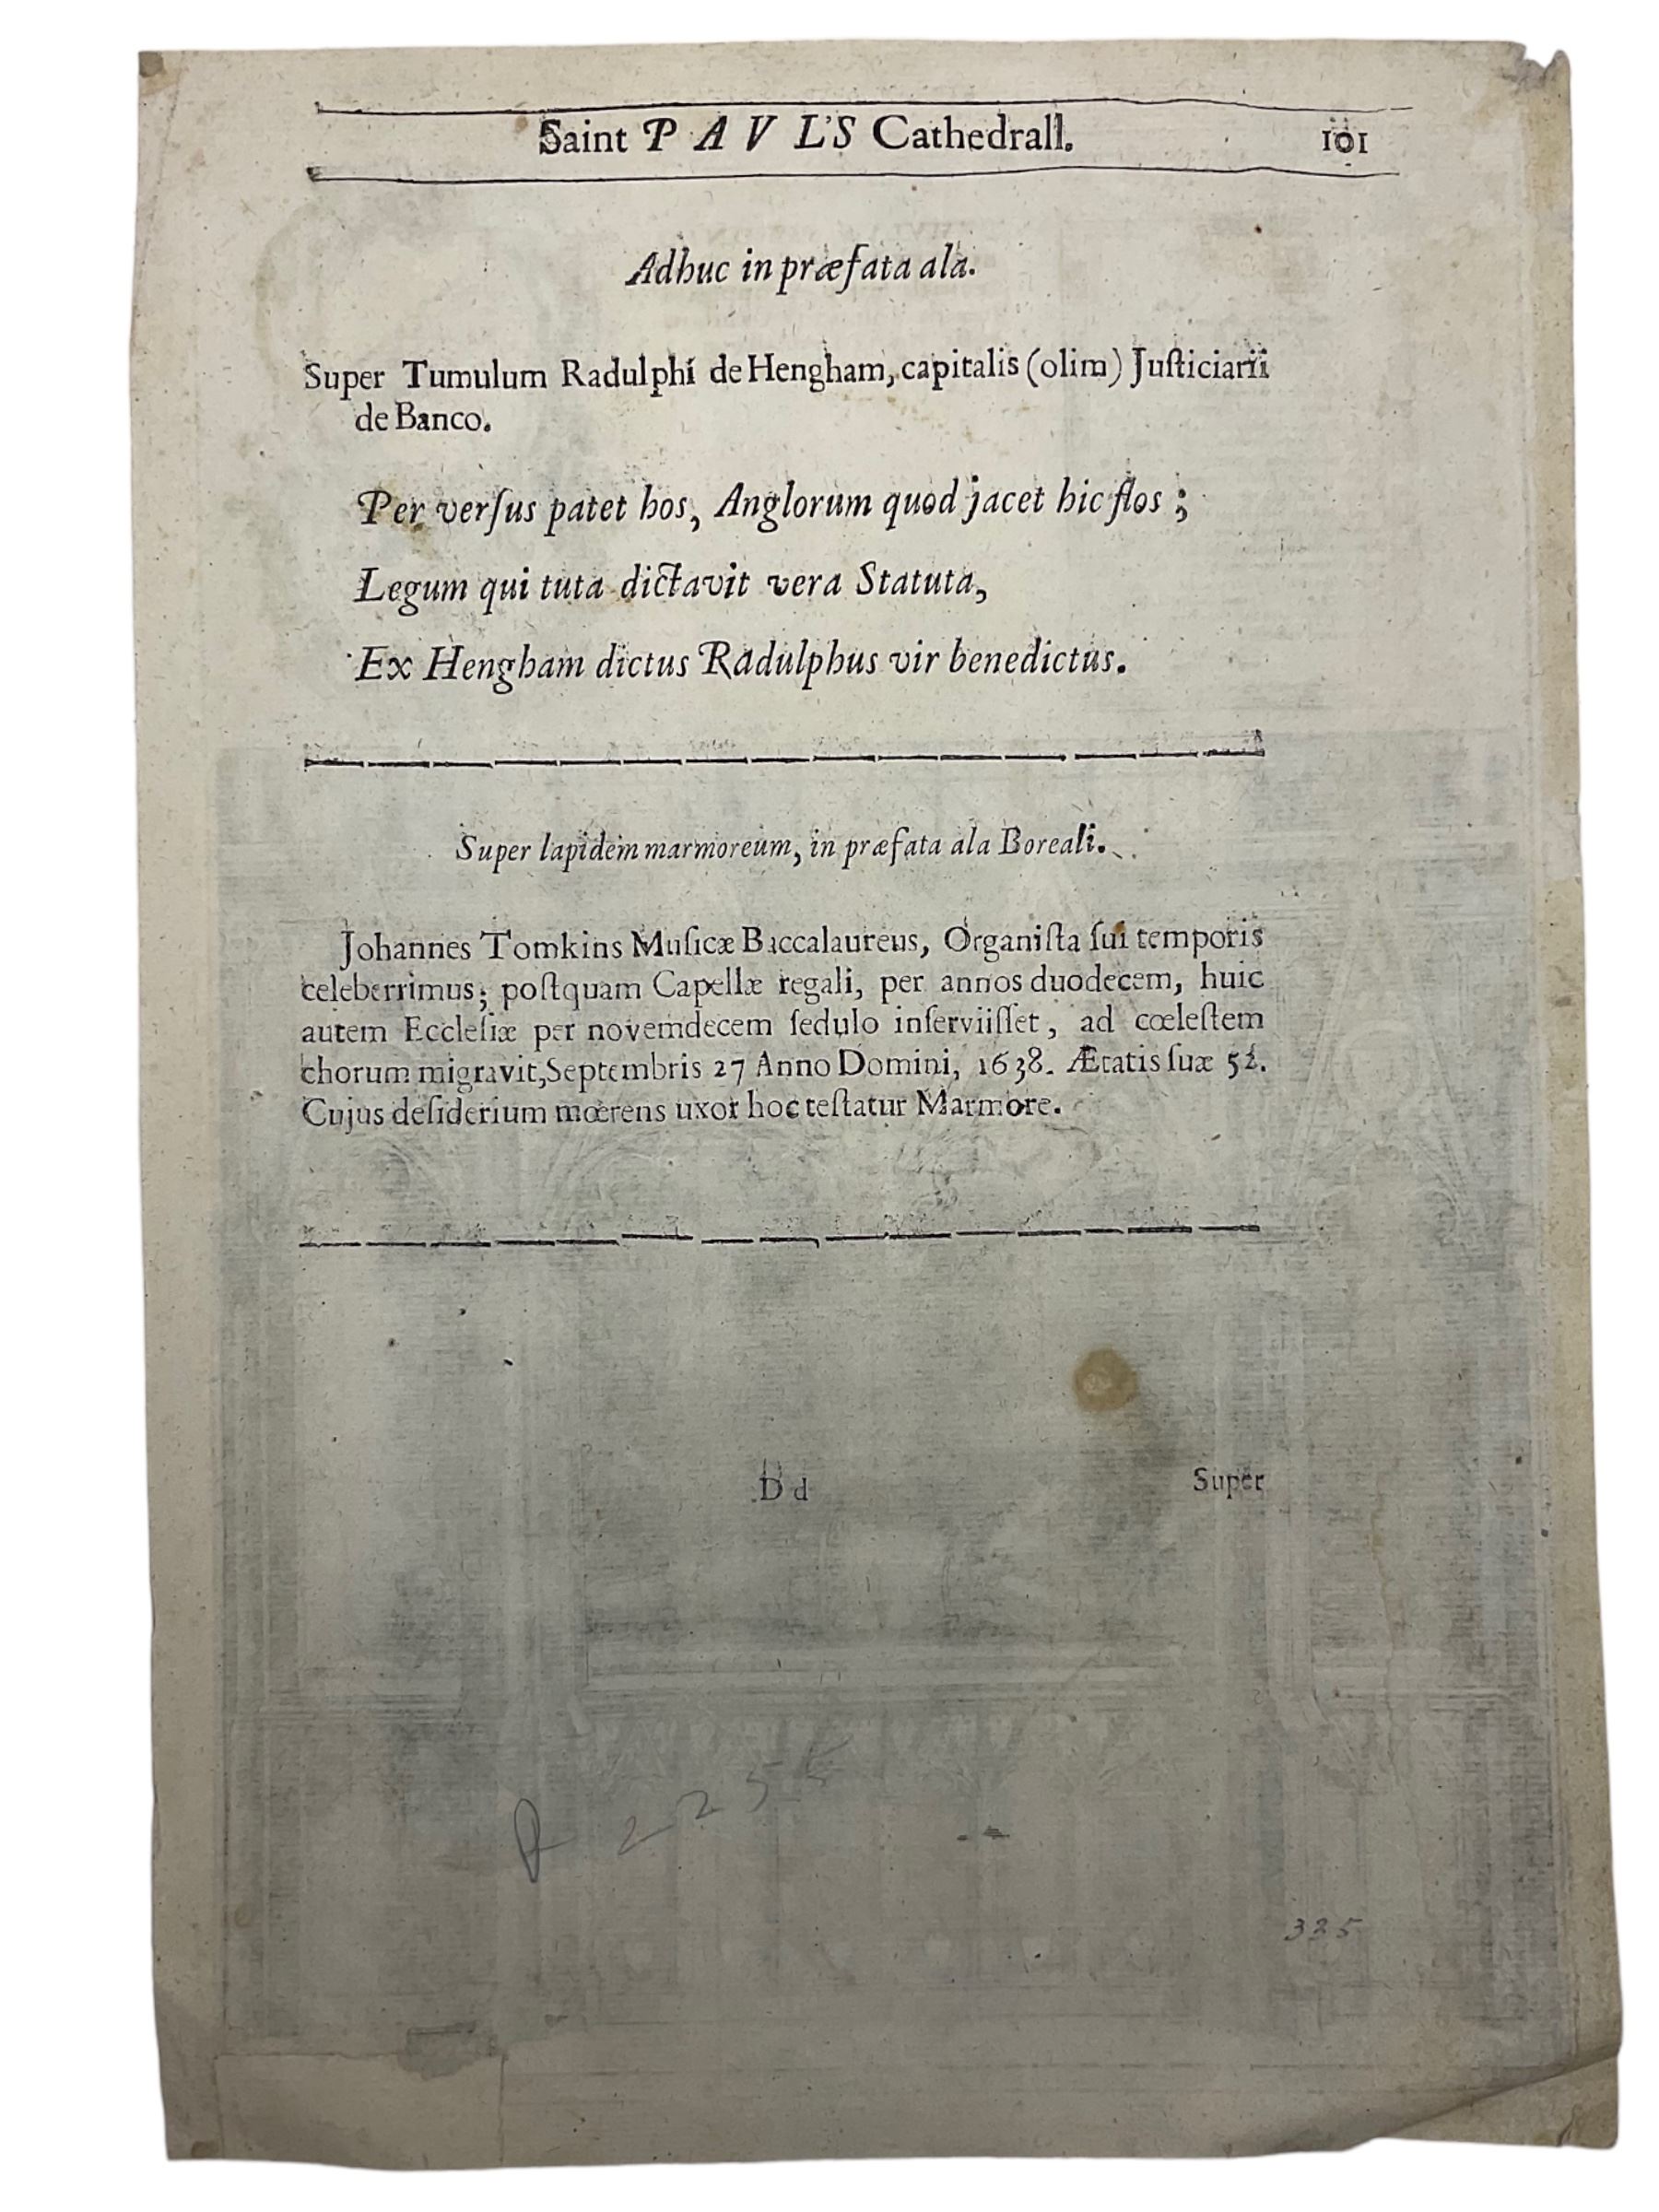 Saint PAVL'S Cathedrall. 101
Adhuc in præfata ala.
Super Tumulum Radulphi de Hengham, capitalis (olim) Juſticiarii
de Banco.
Per verſus patet hos, Anglorum quod jacet hic flos ;
Legum qui tuta dictavit vera Statuta,
Ex Hengham dictus Radulphus vir benedictus.
Super lapidem marmoreum, in præfata ala Boreali.
Johannes Tomkins Muſicæ Baccalaureus, Organiſta ſui temporis
celeberrimus; poſtquam Capellæ regali, per annos duodecem, huic
autem Eccleſiæ per novemdecem ſedulo inſerviiſſet, ad cœleſtem
chorum migravit, Septembris 27 Anno Domini, 1638. Ætatis ſuæ 52.
Cujus deſiderium mœrens uxor hoc teſtatur Marmore.
D d Super
325